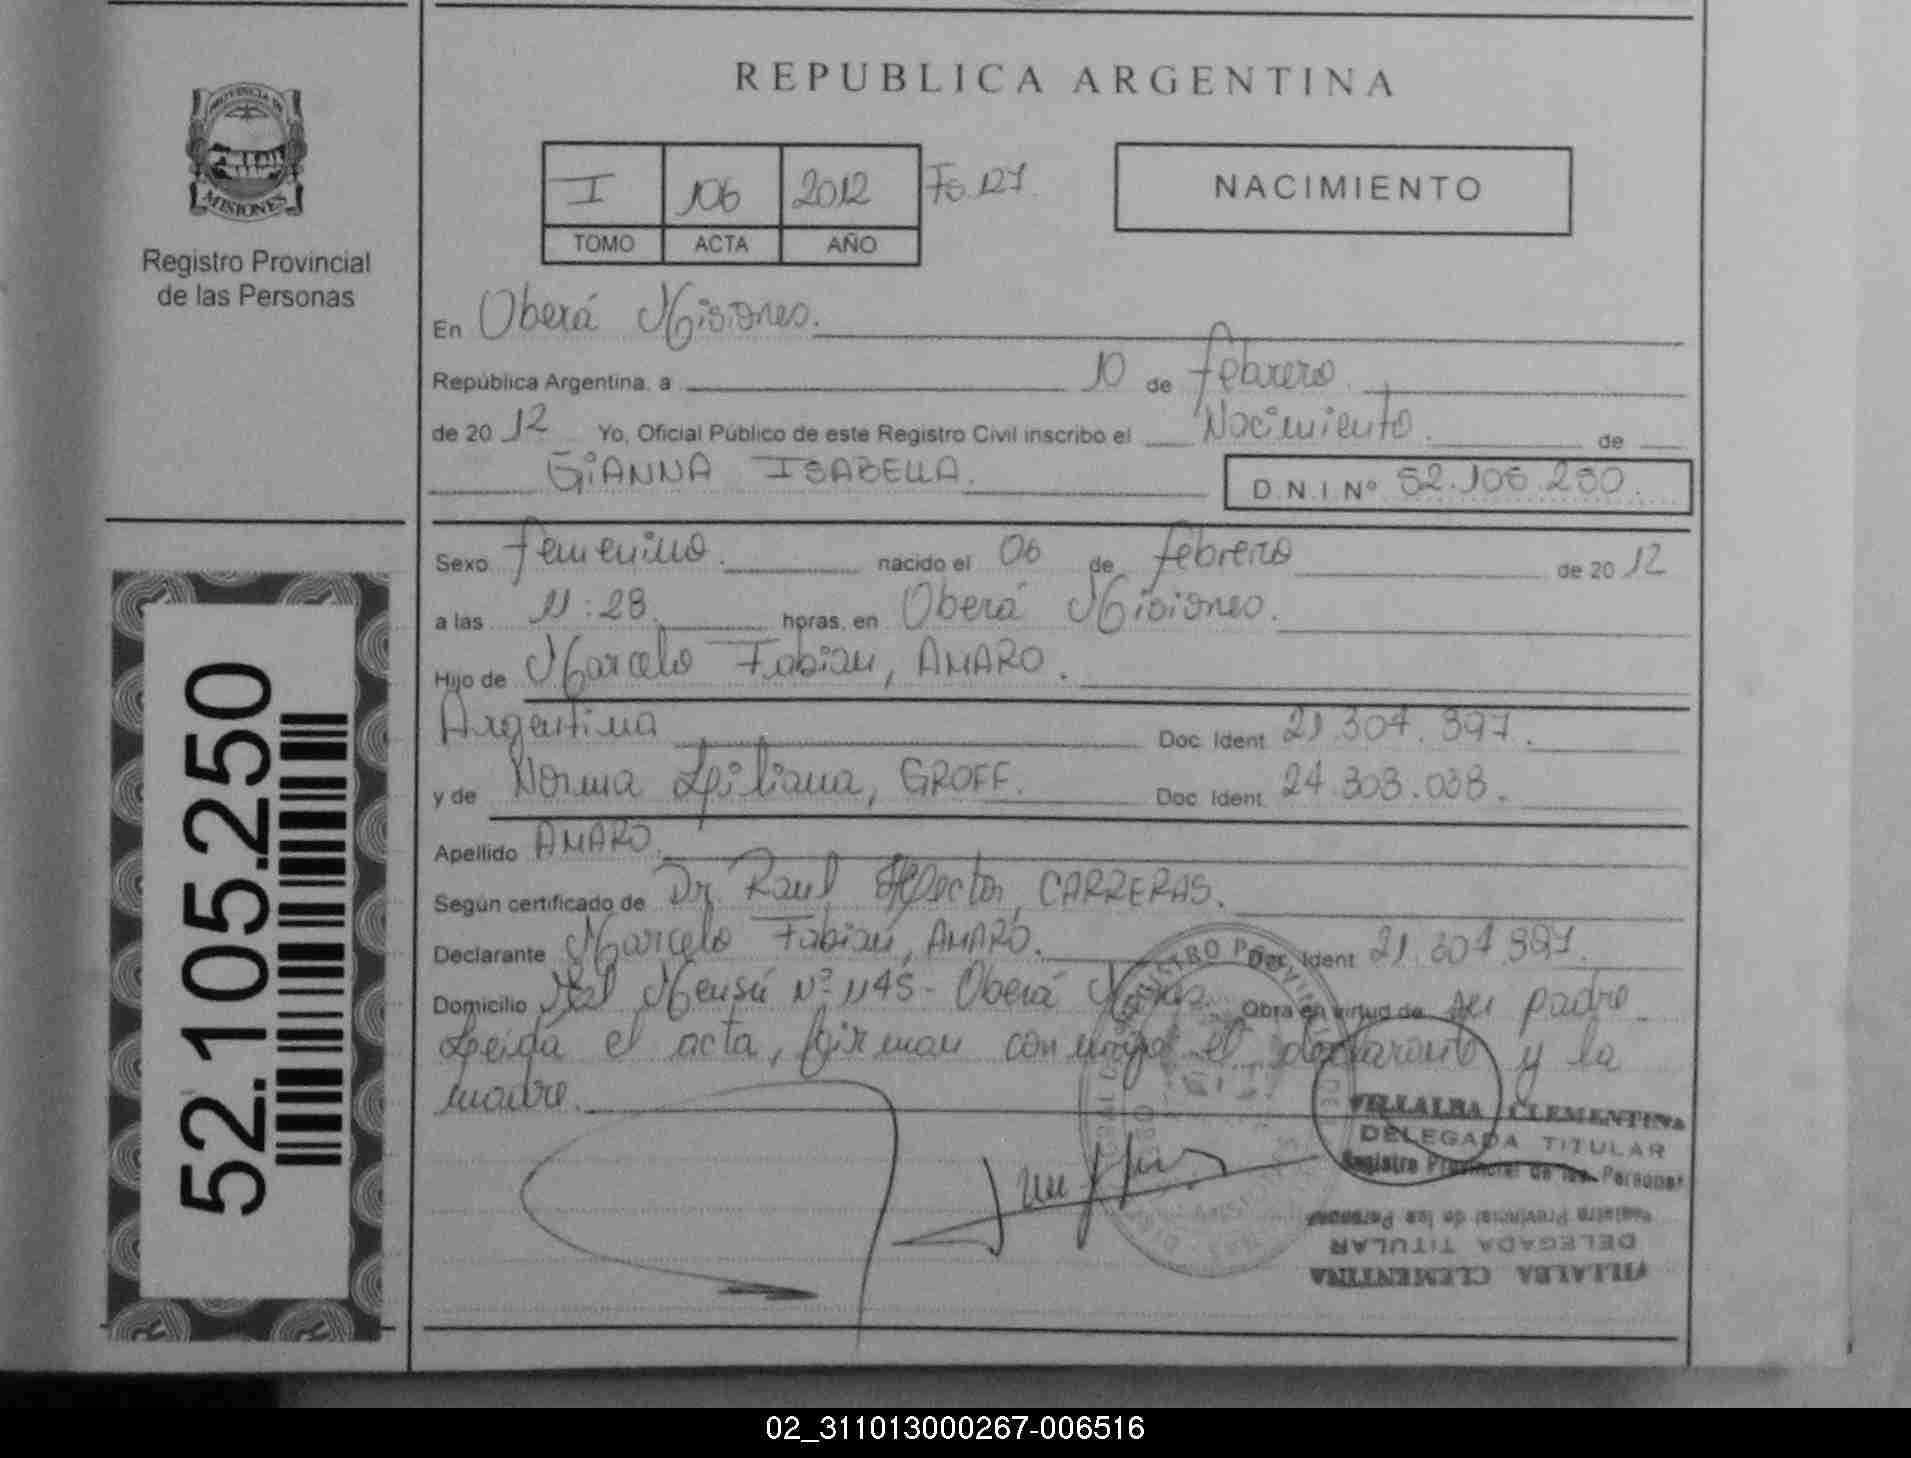 REPUBLICA ARGENTINA
PROVINCIA DE
MISIONES
Registro Provincial
de las Personas
I 106 2012 Fo. 127.
TOMO ACTA AÑO
NACIMIENTO
En Oberá Misiones.
República Argentina, a 10 de febrero.
de 20 12 Yo, Oficial Público de este Registro Civil inscribo el Nacimiento. de
GIANNA ISABELLA. D.N.I. Nº 52.105.250.
Sexo femenino. nacido el 06 de febrero de 20 12
a las 11:28. horas, en Oberá Misiones.
Hijo de Marcelo Fabian, AMARO.
Argentina Doc. Ident. 21.304.397.
y de Norma Liliana, GROFF. Doc. Ident. 24.303.038.
Apellido AMARO.
Según certificado de Dr. Raul Hector, CARRERAS.
Declarante Marcelo Fabian, AMARO. Doc. Ident. 21.304.397.
Domicilio Mensú Nº 1145 - Oberá Obra en virtud de su padre.
Leída el acta, firman conmigo el declarante y la
madre.
VILLALBA CLEMENTINA
DELEGADA TITULAR
Registro Provincial de las Personas
Registro Provincial de las Personas
DELEGADA TITULAR
VILLALBA CLEMENTINA
52.105.250
02_311013000267-006516